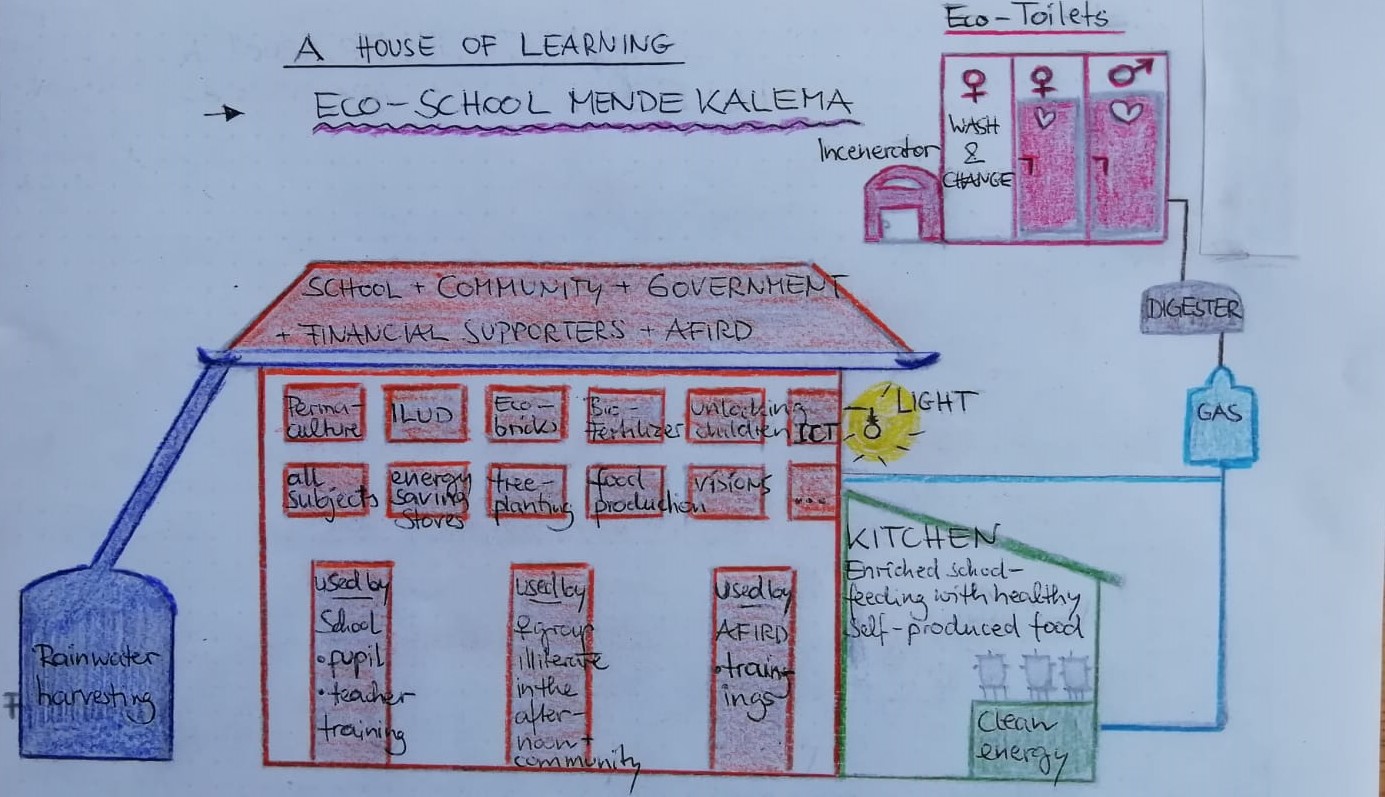 A HOUSE OF LEARNING
→ ECO-SCHOOL MENDE KALEMA
Eco-Toilets
♀ ♀ ♂
WASH
&
CHANGE
Incenerator
DIGESTER
GAS
SCHOOL + COMMUNITY + GOVERNMENT
+ FINANCIAL SUPPORTERS + AFIRD
Perma-
culture
ILUD
Eco-
bricks
Bio-
fertilizer
unlocking
children
ICT
LIGHT
all
subjects
energy
saving
stoves
tree-
planting
food
production
visions
...
used by
School
•pupil
•teacher
training
used by
♀group
illiterate
in the
after-
noon +
community
used by
AFIRD
•train-
ings
KITCHEN
Enriched school-
feeding with healthy
self-produced food
Clean
energy
Rainwater
harvesting